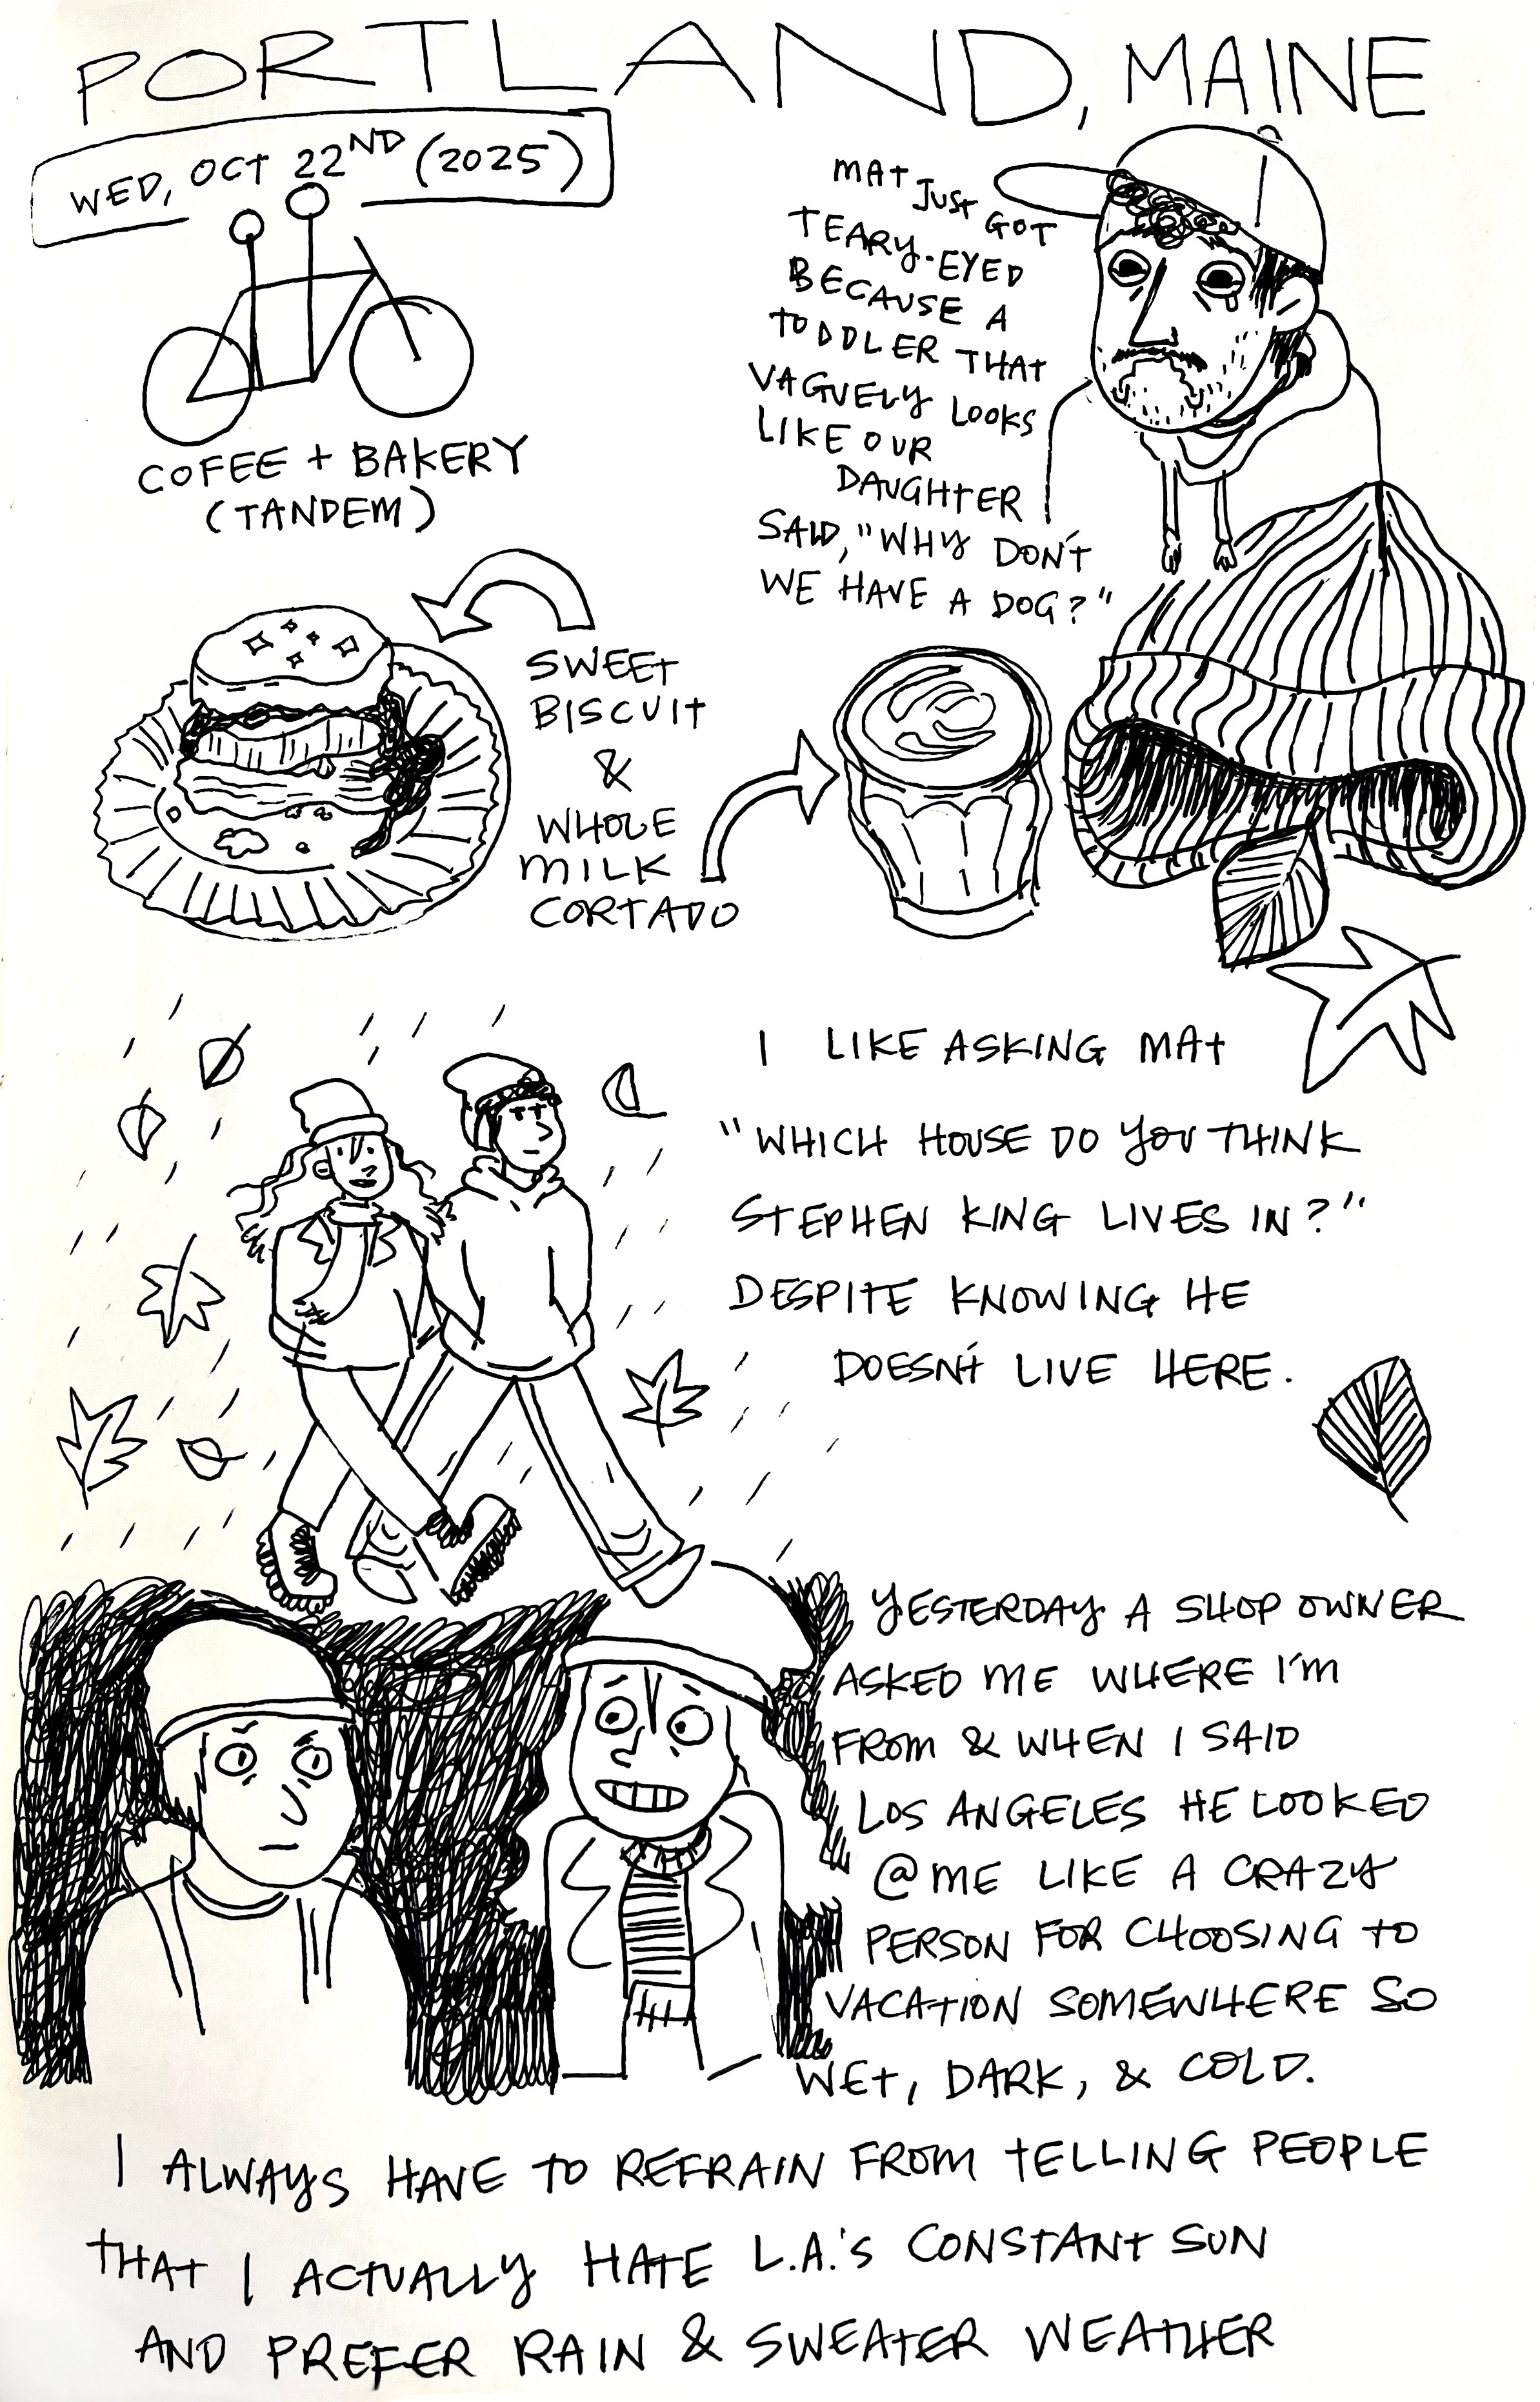 PORTLAND, MAINE
WED, OCT 22ND (2025)
COFEE + BAKERY
(TANDEM)
MAT JUST GOT
TEARY-EYED
BECAUSE A
TODDLER THAT
VAGUELY LOOKS
LIKE OUR
DAUGHTER
SAID, "WHY DON'T
WE HAVE A DOG?"
SWEET
BISCUIT
&
WHOLE
MILK
CORTADO
I LIKE ASKING MAT
"WHICH HOUSE DO YOU THINK
STEPHEN KING LIVES IN?"
DESPITE KNOWING HE
DOESN'T LIVE HERE.
YESTERDAY A SHOP OWNER
ASKED ME WHERE I'M
FROM & WHEN I SAID
LOS ANGELES HE LOOKED
@ ME LIKE A CRAZY
PERSON FOR CHOOSING TO
VACATION SOMEWHERE SO
WET, DARK, & COLD.
I ALWAYS HAVE TO REFRAIN FROM TELLING PEOPLE
THAT I ACTUALLY HATE L.A.'S CONSTANT SUN
AND PREFER RAIN & SWEATER WEATHER